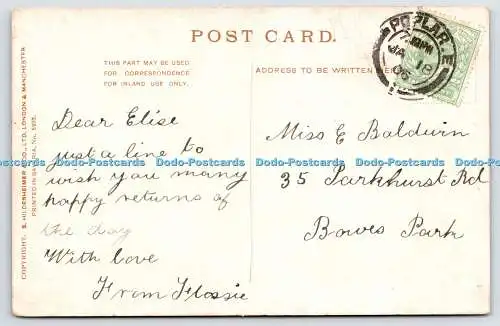 POST CARD.
THIS PART MAY BE USED
FOR CORRESPONDENCE
FOR INLAND USE ONLY.
ADDRESS TO BE WRITTEN HERE
POPLAR. E
18
05
COPYRIGHT. S. HILDESHEIMER & CO., LTD. LONDON & MANCHESTER
PRINTED IN SAXONIA, No.
Dear Elise
just a line to
wish you many
happy returns of
the day
With love
From Flossie
Miss E Baldwin
35 Parkhurst Rd
Bowes Park
Dodo-Postcards Dodo-Postcards Dodo-Postcards Dodo-Postcards Dodo-Postcards